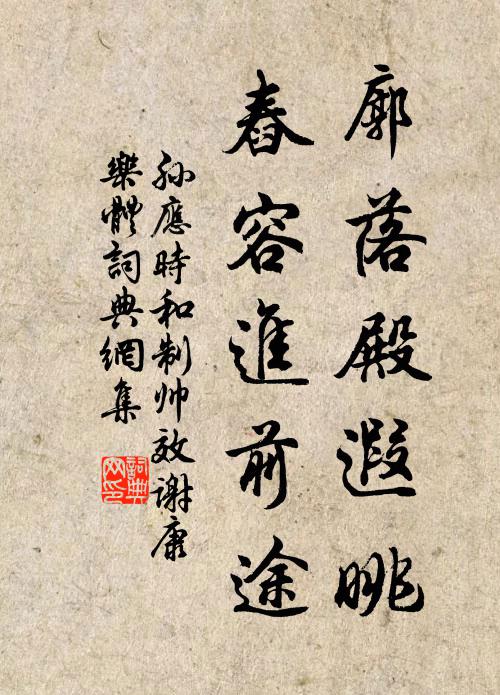 廓落殿遐眺
舂容進前途
孫應時和制帥效謝康
樂體詞典網集
詞典
网印